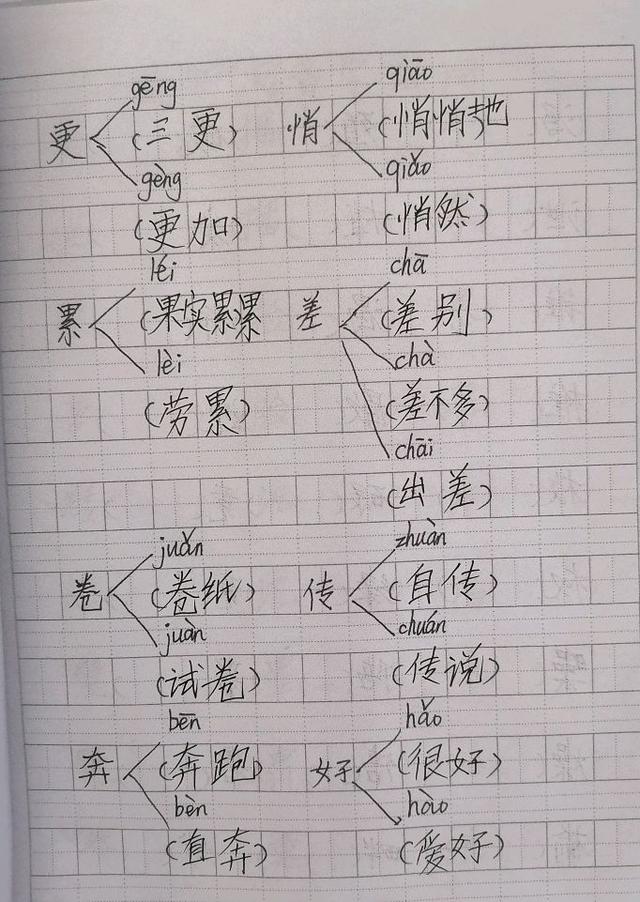 gēng qiāo
更 (三更) 悄 (悄悄地)
gèng qiǎo
(更加) (悄然)
léi chā
累 (果实累累 差 (差别)
lèi chà
(劳累) (差不多)
chāi
(出差)
juǎn zhuàn
卷 (卷纸) 传 (自传)
juàn chuán
(试卷) (传说)
bēn hǎo
奔 (奔跑) 好 (很好)
bèn hào
(直奔) (爱好)